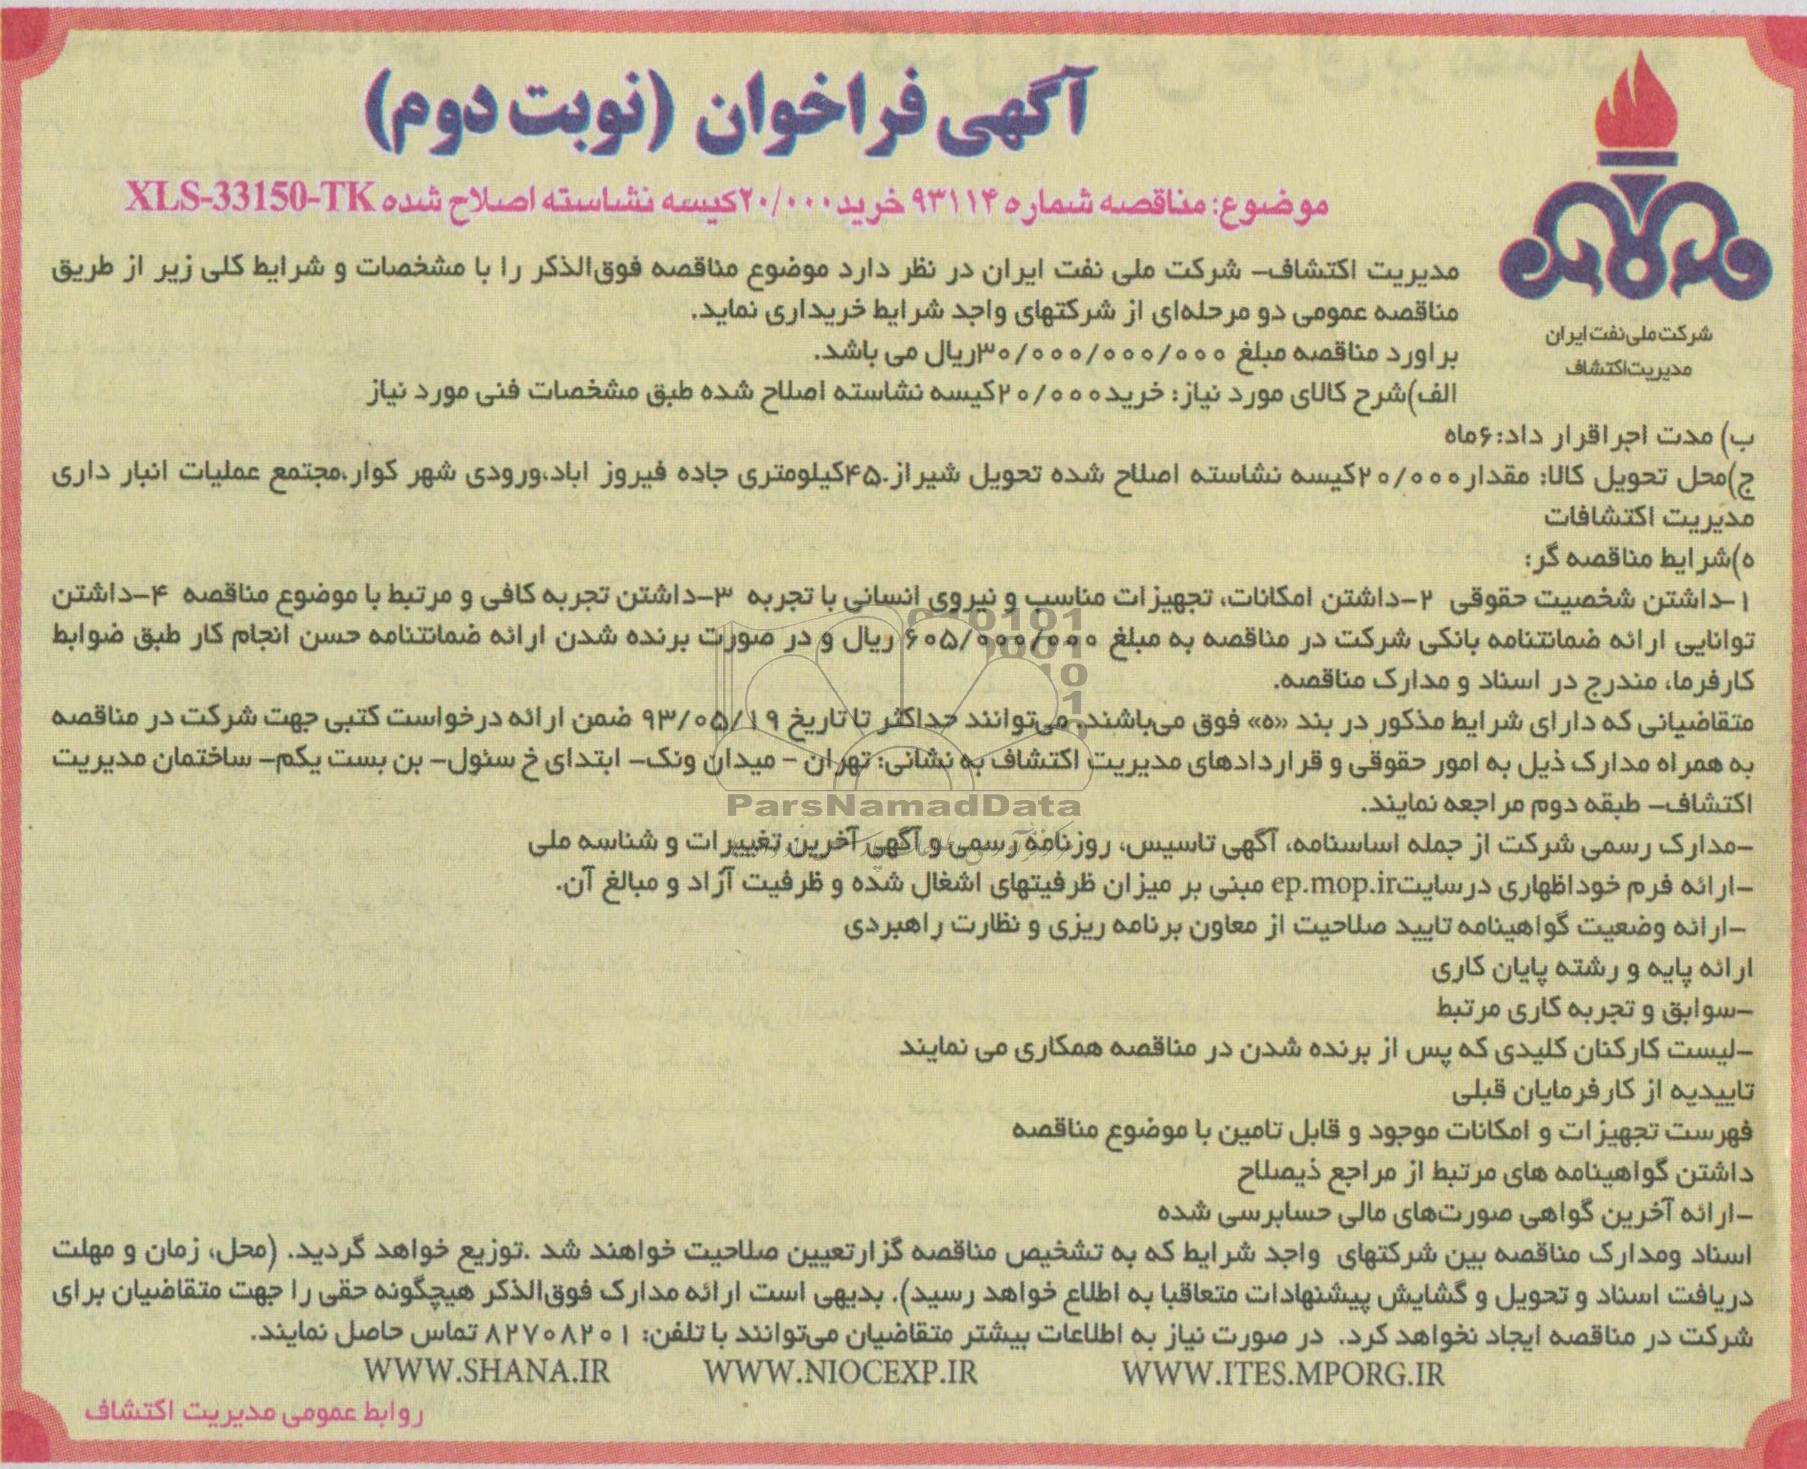 آگهی فراخوان (نوبت دوم)
موضوع: مناقصه شماره ۹۳۱۱۴ خرید ۲۰/۰۰۰کیسه نشاسته اصلاح شده XLS-33150-TK
شرکت ملی نفت ایران
مدیریت اکتشاف
مدیریت اکتشاف- شرکت ملی نفت ایران در نظر دارد موضوع مناقصه فوق‌الذکر را با مشخصات و شرایط کلی زیر از طریق
مناقصه عمومی دو مرحله‌ای از شرکتهای واجد شرایط خریداری نماید.
براورد مناقصه مبلغ ۳۰/۰۰۰/۰۰۰/۰۰۰ریال می باشد.
الف)شرح کالای مورد نیاز: خرید۲۰/۰۰۰کیسه نشاسته اصلاح شده طبق مشخصات فنی مورد نیاز
ب) مدت اجراقرار داد:۶ماه
ج)محل تحویل کالا: مقدار۲۰/۰۰۰کیسه نشاسته اصلاح شده تحویل شیراز.۴۵کیلومتری جاده فیروز اباد،ورودی شهر کوار،مجتمع عملیات انبار داری
مدیریت اکتشافات
ه)شرایط مناقصه گر:
۱-داشتن شخصیت حقوقی ۲-داشتن امکانات، تجهیزات مناسب و نیروی انسانی با تجربه ۳-داشتن تجربه کافی و مرتبط با موضوع مناقصه ۴-داشتن
توانایی ارائه ضمانتنامه بانکی شرکت در مناقصه به مبلغ ۶۰۵/۰۰۰/۰۰۰ ریال و در صورت برنده شدن ارائه ضمانتنامه حسن انجام کار طبق ضوابط
کارفرما، مندرج در اسناد و مدارک مناقصه.
متقاضیانی که دارای شرایط مذکور در بند «ه» فوق می‌باشند، می‌توانند حداکثر تا تاریخ ۹۳/۰۵/۱۹ ضمن ارائه درخواست کتبی جهت شرکت در مناقصه
به همراه مدارک ذیل به امور حقوقی و قراردادهای مدیریت اکتشاف به نشانی: تهران - میدان ونک- ابتدای خ سئول- بن بست یکم- ساختمان مدیریت
اکتشاف- طبقه دوم مراجعه نمایند.
ParsNamadData
-مدارک رسمی شرکت از جمله اساسنامه، آگهی تاسیس، روزنامه رسمی و آگهی آخرین تغییرات و شناسه ملی
-ارائه فرم خوداظهاری درسایتep.mop.ir مبنی بر میزان ظرفیتهای اشغال شده و ظرفیت آزاد و مبالغ آن.
-ارائه وضعیت گواهینامه تایید صلاحیت از معاون برنامه ریزی و نظارت راهبردی
ارائه پایه و رشته پایان کاری
-سوابق و تجربه کاری مرتبط
-لیست کارکنان کلیدی که پس از برنده شدن در مناقصه همکاری می نمایند
تاییدیه از کارفرمایان قبلی
فهرست تجهیزات و امکانات موجود و قابل تامین با موضوع مناقصه
داشتن گواهینامه های مرتبط از مراجع ذیصلاح
-ارائه آخرین گواهی صورت‌های مالی حسابرسی شده
اسناد ومدارک مناقصه بین شرکتهای واجد شرایط که به تشخیص مناقصه گزارتعیین صلاحیت خواهند شد .توزیع خواهد گردید. (محل، زمان و مهلت
دریافت اسناد و تحویل و گشایش پیشنهادات متعاقبا به اطلاع خواهد رسید). بدیهی است ارائه مدارک فوق‌الذکر هیچگونه حقی را جهت متقاضیان برای
شرکت در مناقصه ایجاد نخواهد کرد. در صورت نیاز به اطلاعات بیشتر متقاضیان می‌توانند با تلفن: ۸۲۷۰۸۲۰۱ تماس حاصل نمایند.
WWW.SHANA.IR WWW.NIOCEXP.IR WWW.ITES.MPORG.IR
روابط عمومی مدیریت اکتشاف